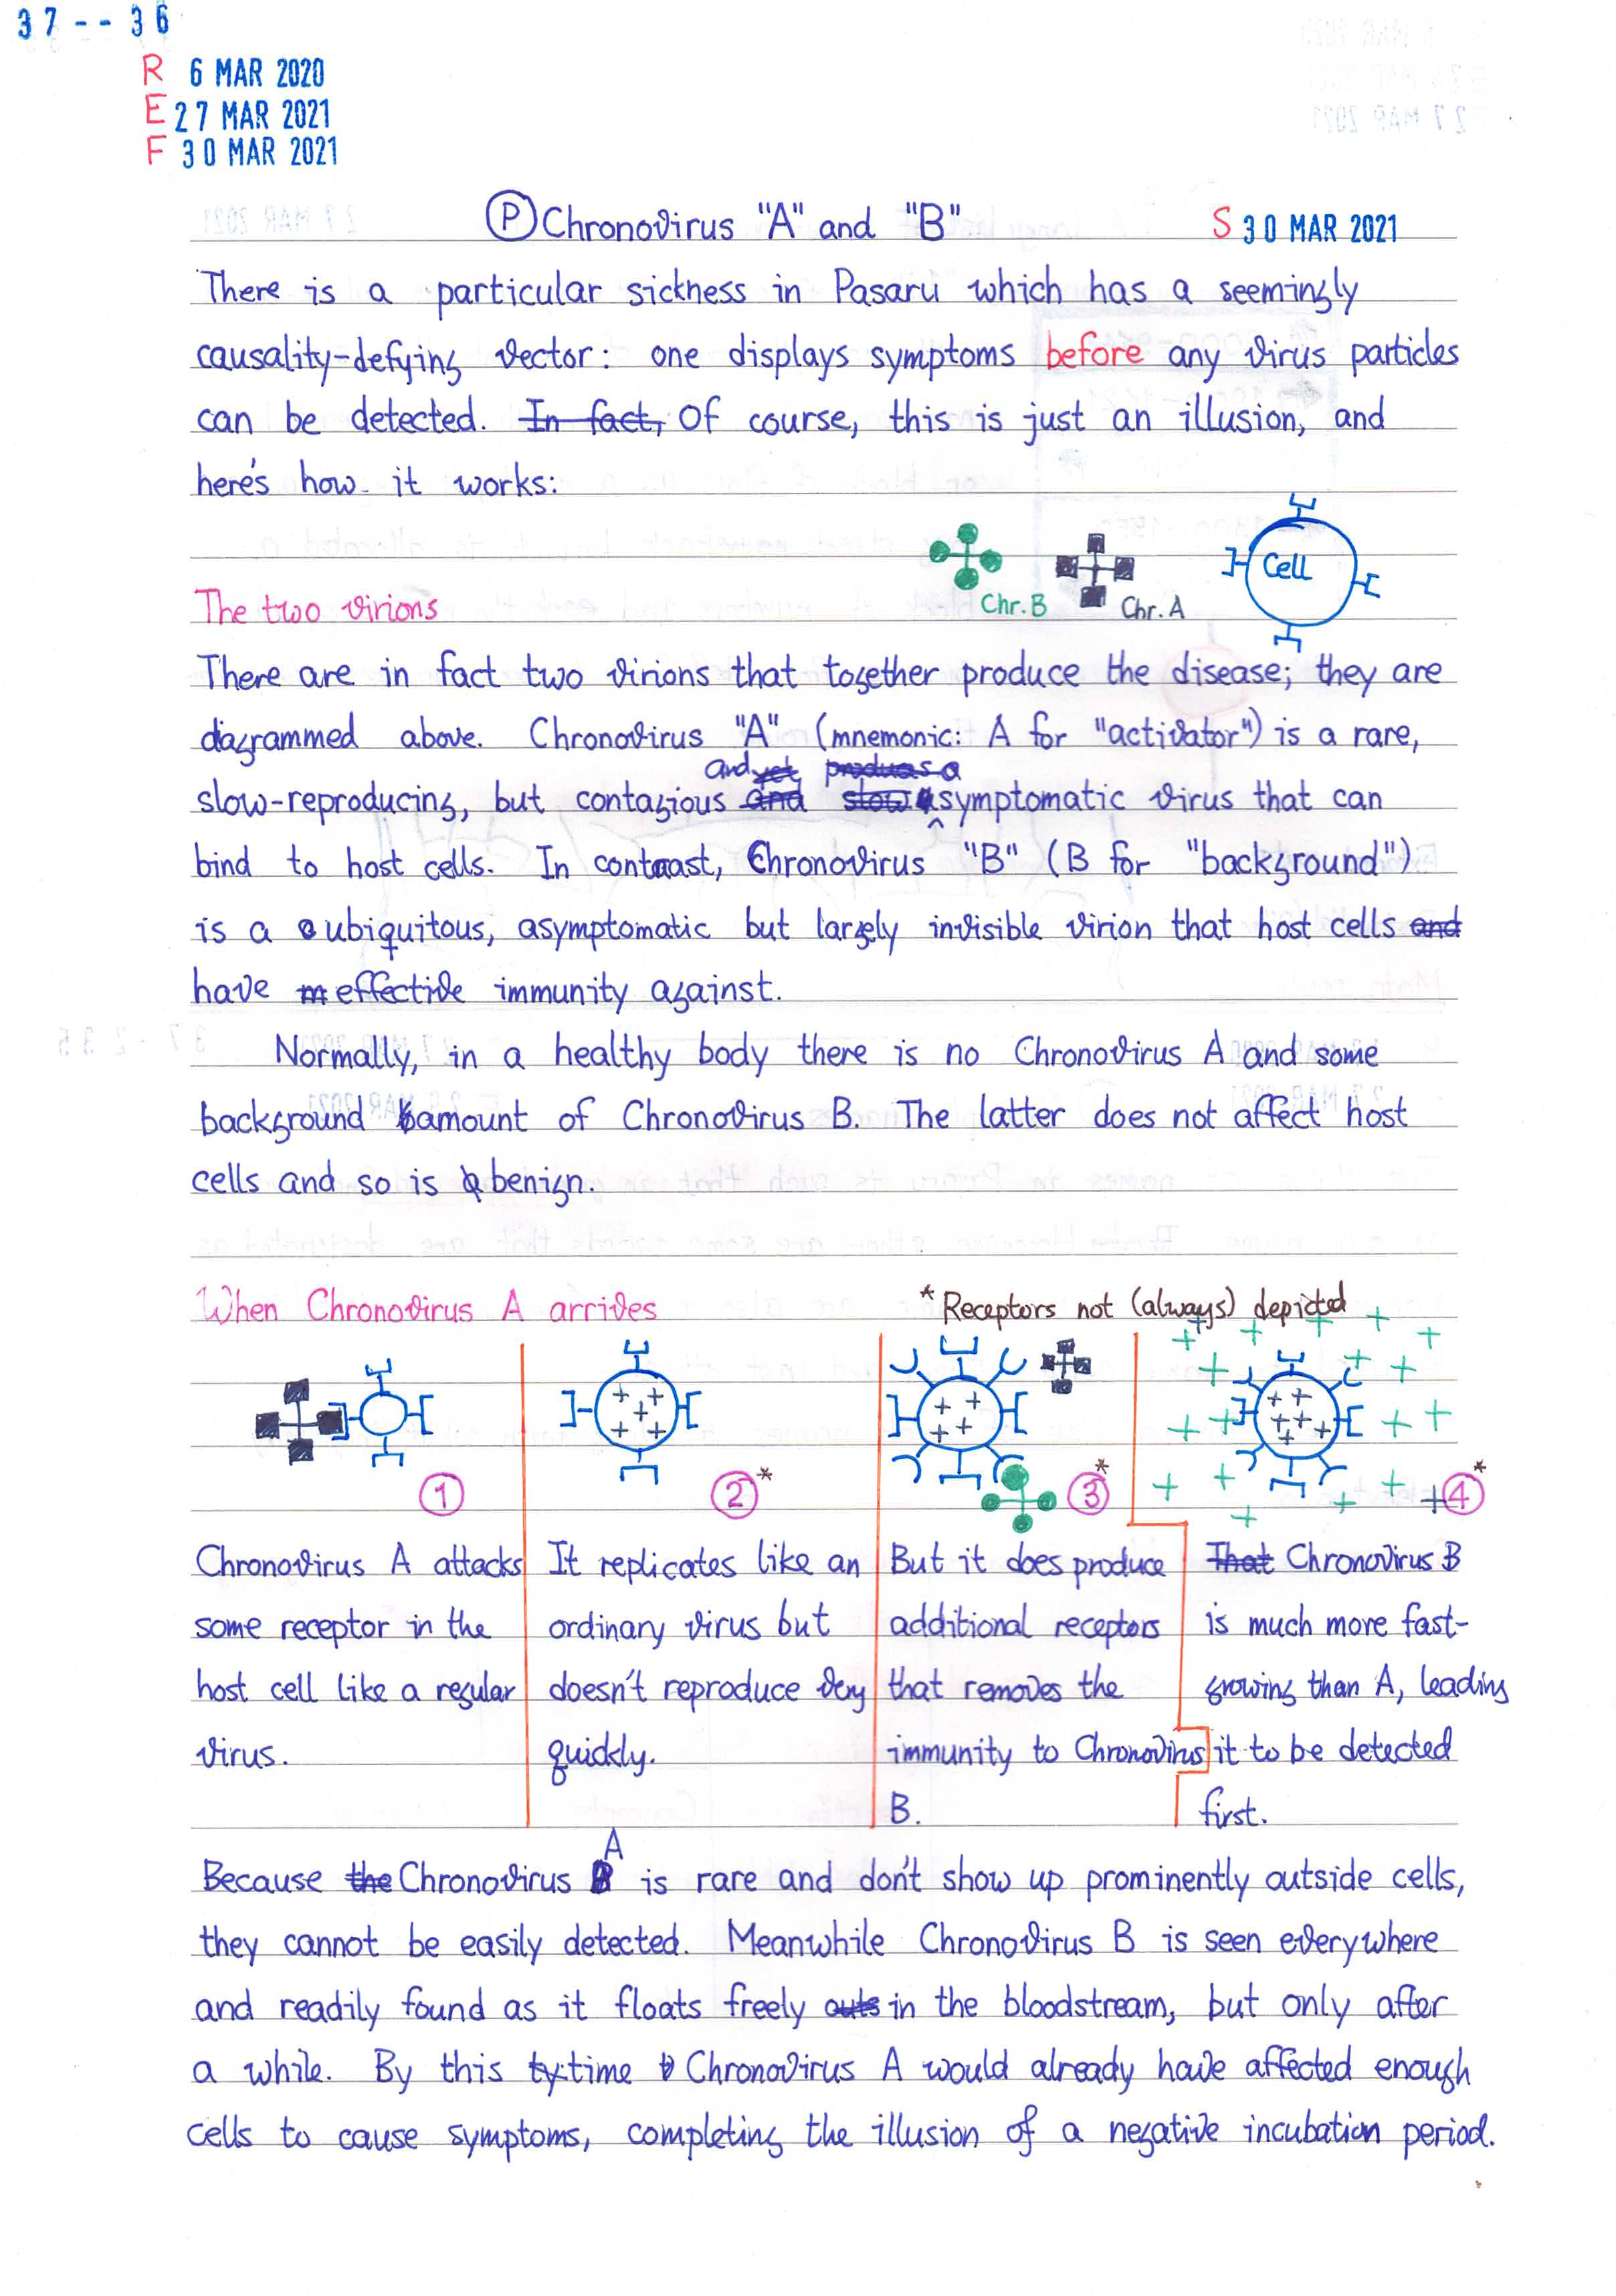 37--36
R 6 MAR 2020
E 27 MAR 2021
F 30 MAR 2021
Ⓟ Chronovirus "A" and "B"
S 30 MAR 2021
There is a particular sickness in Pasaru which has a seemingly
causality-defying vector: one displays symptoms before any virus particles
can be detected. In fact, Of course, this is just an illusion, and
here's how it works:
Cell
Chr. B
Chr. A
The two virions
There are in fact two virions that together produce the disease; they are
diagrammed above. Chronovirus "A" (mnemonic: A for "activator") is a rare,
and yet produces a
slow-reproducing, but contagious and slow symptomatic virus that can
bind to host cells. In contrast, Chronovirus "B" (B for "background")
is a ubiquitous, asymptomatic but largely invisible virion that host cells and
have effective immunity against.
Normally, in a healthy body there is no Chronovirus A and some
background amount of Chronovirus B. The latter does not affect host
cells and so is benign.
When Chronovirus A arrives
* Receptors not (always) depicted
1
2*
3*
4*
Chronovirus A attacks
some receptor in the
host cell like a regular
virus.
It replicates like an
ordinary virus but
doesn't reproduce very
quickly.
But it does produce
additional receptors
that removes the
immunity to Chronovirus
B.
That Chronovirus B
is much more fast-
growing than A, leading
it to be detected
first.
A
Because the Chronovirus B is rare and don't show up prominently outside cells,
they cannot be easily detected. Meanwhile Chronovirus B is seen everywhere
and readily found as it floats freely outs in the bloodstream, but only after
a while. By this ty time Chronovirus A would already have affected enough
cells to cause symptoms, completing the illusion of a negative incubation period.